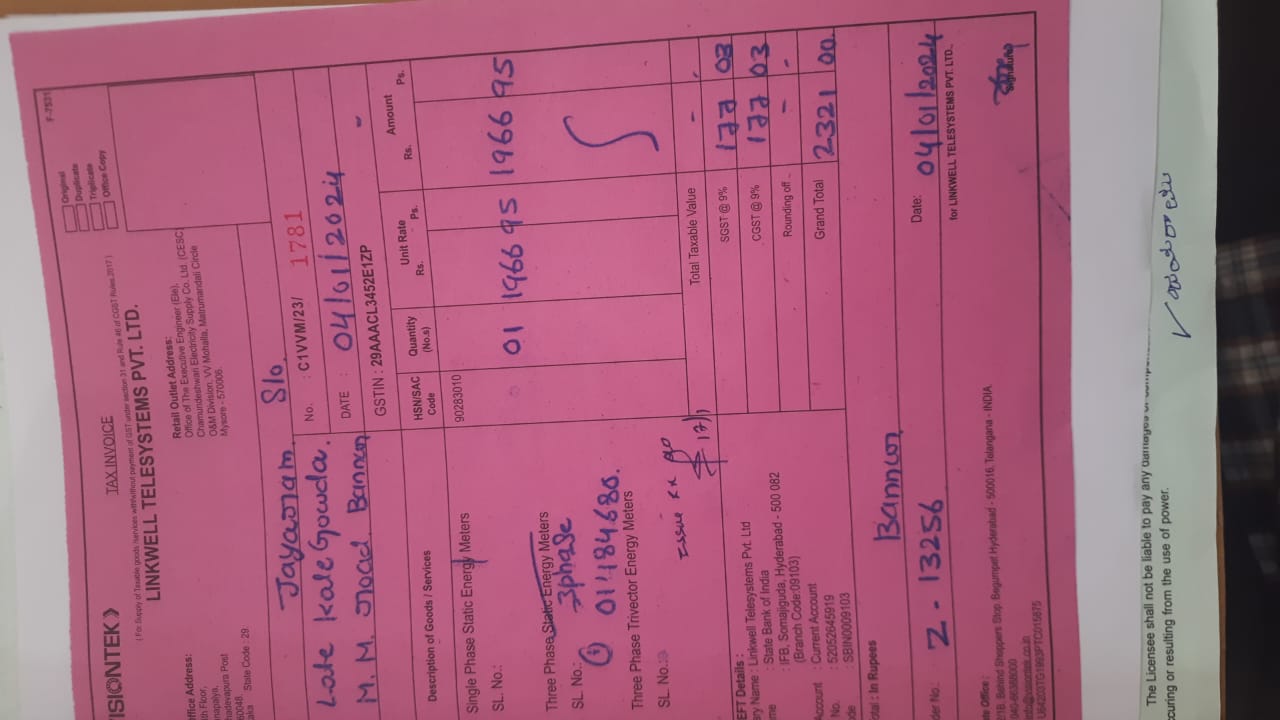 F-7531
VISIONTEK
TAX INVOICE
( For Supply of Taxable goods /services with/without payment of GST under section 31 and Rule 46 of CGST Rules 2017 )
LINKWELL TELESYSTEMS PVT. LTD.
Original
Duplicate
Triplicate
Office Copy
ffice Address:
th Floor,
anapalya,
hadevapura Post
60048.
aka State Code : 29.
Retail Outlet Address:
Office of The Executive Engineer (Ele),
Chamundeshwari Electricity Supply Co. Ltd. (CESC)
O&M Division, VV Mohalla, Matrumandali Circle
Mysore - 570006.
Jayaram S/o
Late Kale Gowda.
M. M. Road, Bannur
No. : C1VVM/23/ 1781
DATE : 04/01/2024
GSTIN : 29AACL3452E1ZP -
Description of Goods / Services
HSN/SAC Code
Quantity (No.s)
Unit Rate
Rs. Ps.
Amount
Rs. Ps.
Single Phase Static Energy Meters
90283010
SL. No.:
01 1966 95 1966 95
Three Phase Static Energy Meters
3phase
SL. No.:
① 01484680.
Three Phase Trivector Energy Meters
SL. No.:
Issue
Total Taxable Value - -
SGST @ 9% 177 03
CGST @ 9% 177 03
Rounding off - -
Grand Total 2321 00
EFT Details :
ry Name : Linkwell Telesystems Pvt. Ltd
me : State Bank of India
: IFB, Somajiguda, Hyderabad - 500 082
(Branch Code:09103)
Account : Current Account
No. : 52052645919
de : SBIN0009103
otal : In Rupees
Bannur
der No.: Z - 13256
Date: 04/01/2024
for LINKWELL TELESYSTEMS PVT. LTD.,
Signature
te Office :
21B, Behind Shoppers Stop, Begumpet Hyderabad - 500016, Telangana - INDIA.
040-66388000
info@visiontek.co.in
U64203TG1993PTC015875
The Licensee shall not be liable to pay any damages or
curing or resulting from the use of power.